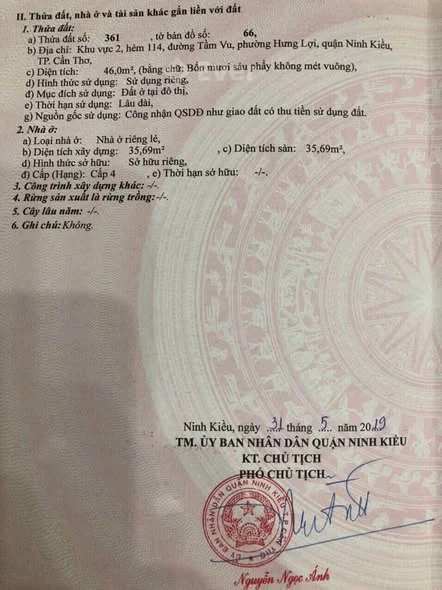 II. Thửa đất, nhà ở và tài sản khác gắn liền với đất
1. Thửa đất:
a) Thửa đất số: 361 , tờ bản đồ số: 66,
b) Địa chỉ: Khu vực 2, hẻm 114, đường Tầm Vu, phường Hưng Lợi, quận Ninh Kiều,
TP. Cần Thơ,
c) Diện tích: 46,0m², (bằng chữ: Bốn mươi sáu phẩy không mét vuông),
d) Hình thức sử dụng: Sử dụng riêng,
đ) Mục đích sử dụng: Đất ở tại đô thị,
e) Thời hạn sử dụng: Lâu dài,
g) Nguồn gốc sử dụng: Công nhận QSDĐ như giao đất có thu tiền sử dụng đất.
2. Nhà ở:
a) Loại nhà ở: Nhà ở riêng lẻ,
b) Diện tích xây dựng: 35,69m² , c) Diện tích sàn: 35,69m²,
d) Hình thức sở hữu: Sở hữu riêng,
đ) Cấp (Hạng): Cấp 4 , e) Thời hạn sở hữu: -/-.
3. Công trình xây dựng khác: -/-.
4. Rừng sản xuất là rừng trồng:-/-.
5. Cây lâu năm: -/-.
6. Ghi chú: Không.
Ninh Kiều, ngày 31 tháng 5 năm 2019
TM. ỦY BAN NHÂN DÂN QUẬN NINH KIỀU
KT. CHỦ TỊCH
PHÓ CHỦ TỊCH
ỦY BAN NHÂN DÂN QUẬN NINH KIỀU T.P CẦN THƠ
Nguyễn Ngọc Ánh